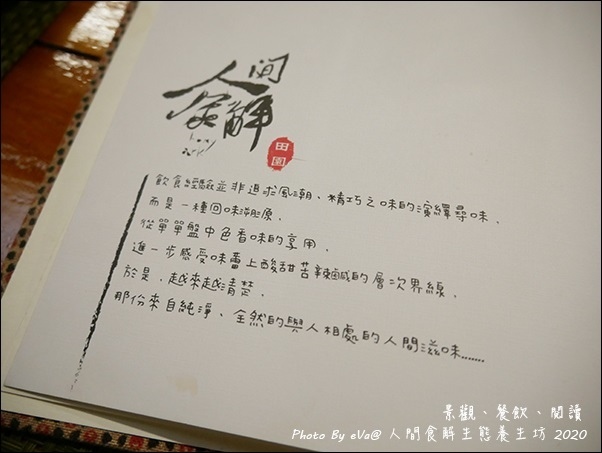 人間
食解
田園
飲食經驗並非追求風潮、精巧之味的演繹尋味，
而是一種回味溯源，
從單單盤中色香味的享用，
進一步感受味蕾上酸甜苦辣鹹的層次界線，
於是，越來越清楚，
那份來自純淨、全然的與人相處的人間滋味……
景觀、餐飲、閱讀
Photo By eVa@ 人間食解生態養生坊 2020